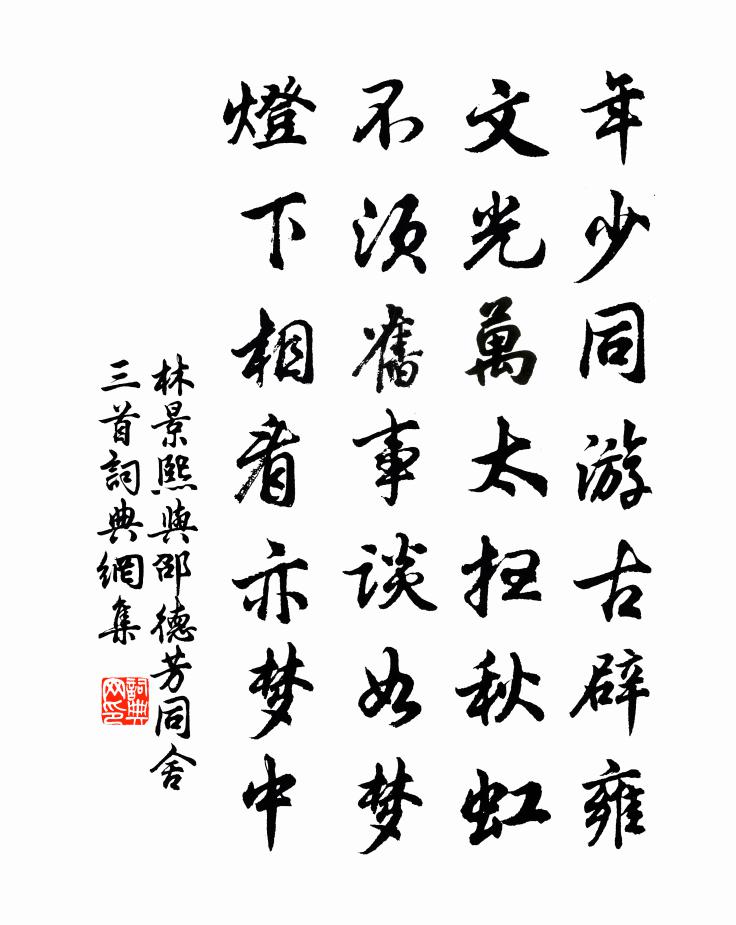 年少同游古辟雍
文光萬太抂秋虹
不须舊事談如梦
燈下相看亦梦中
林景熙與邵德芳同舍
三首詞典網集
詞典网印